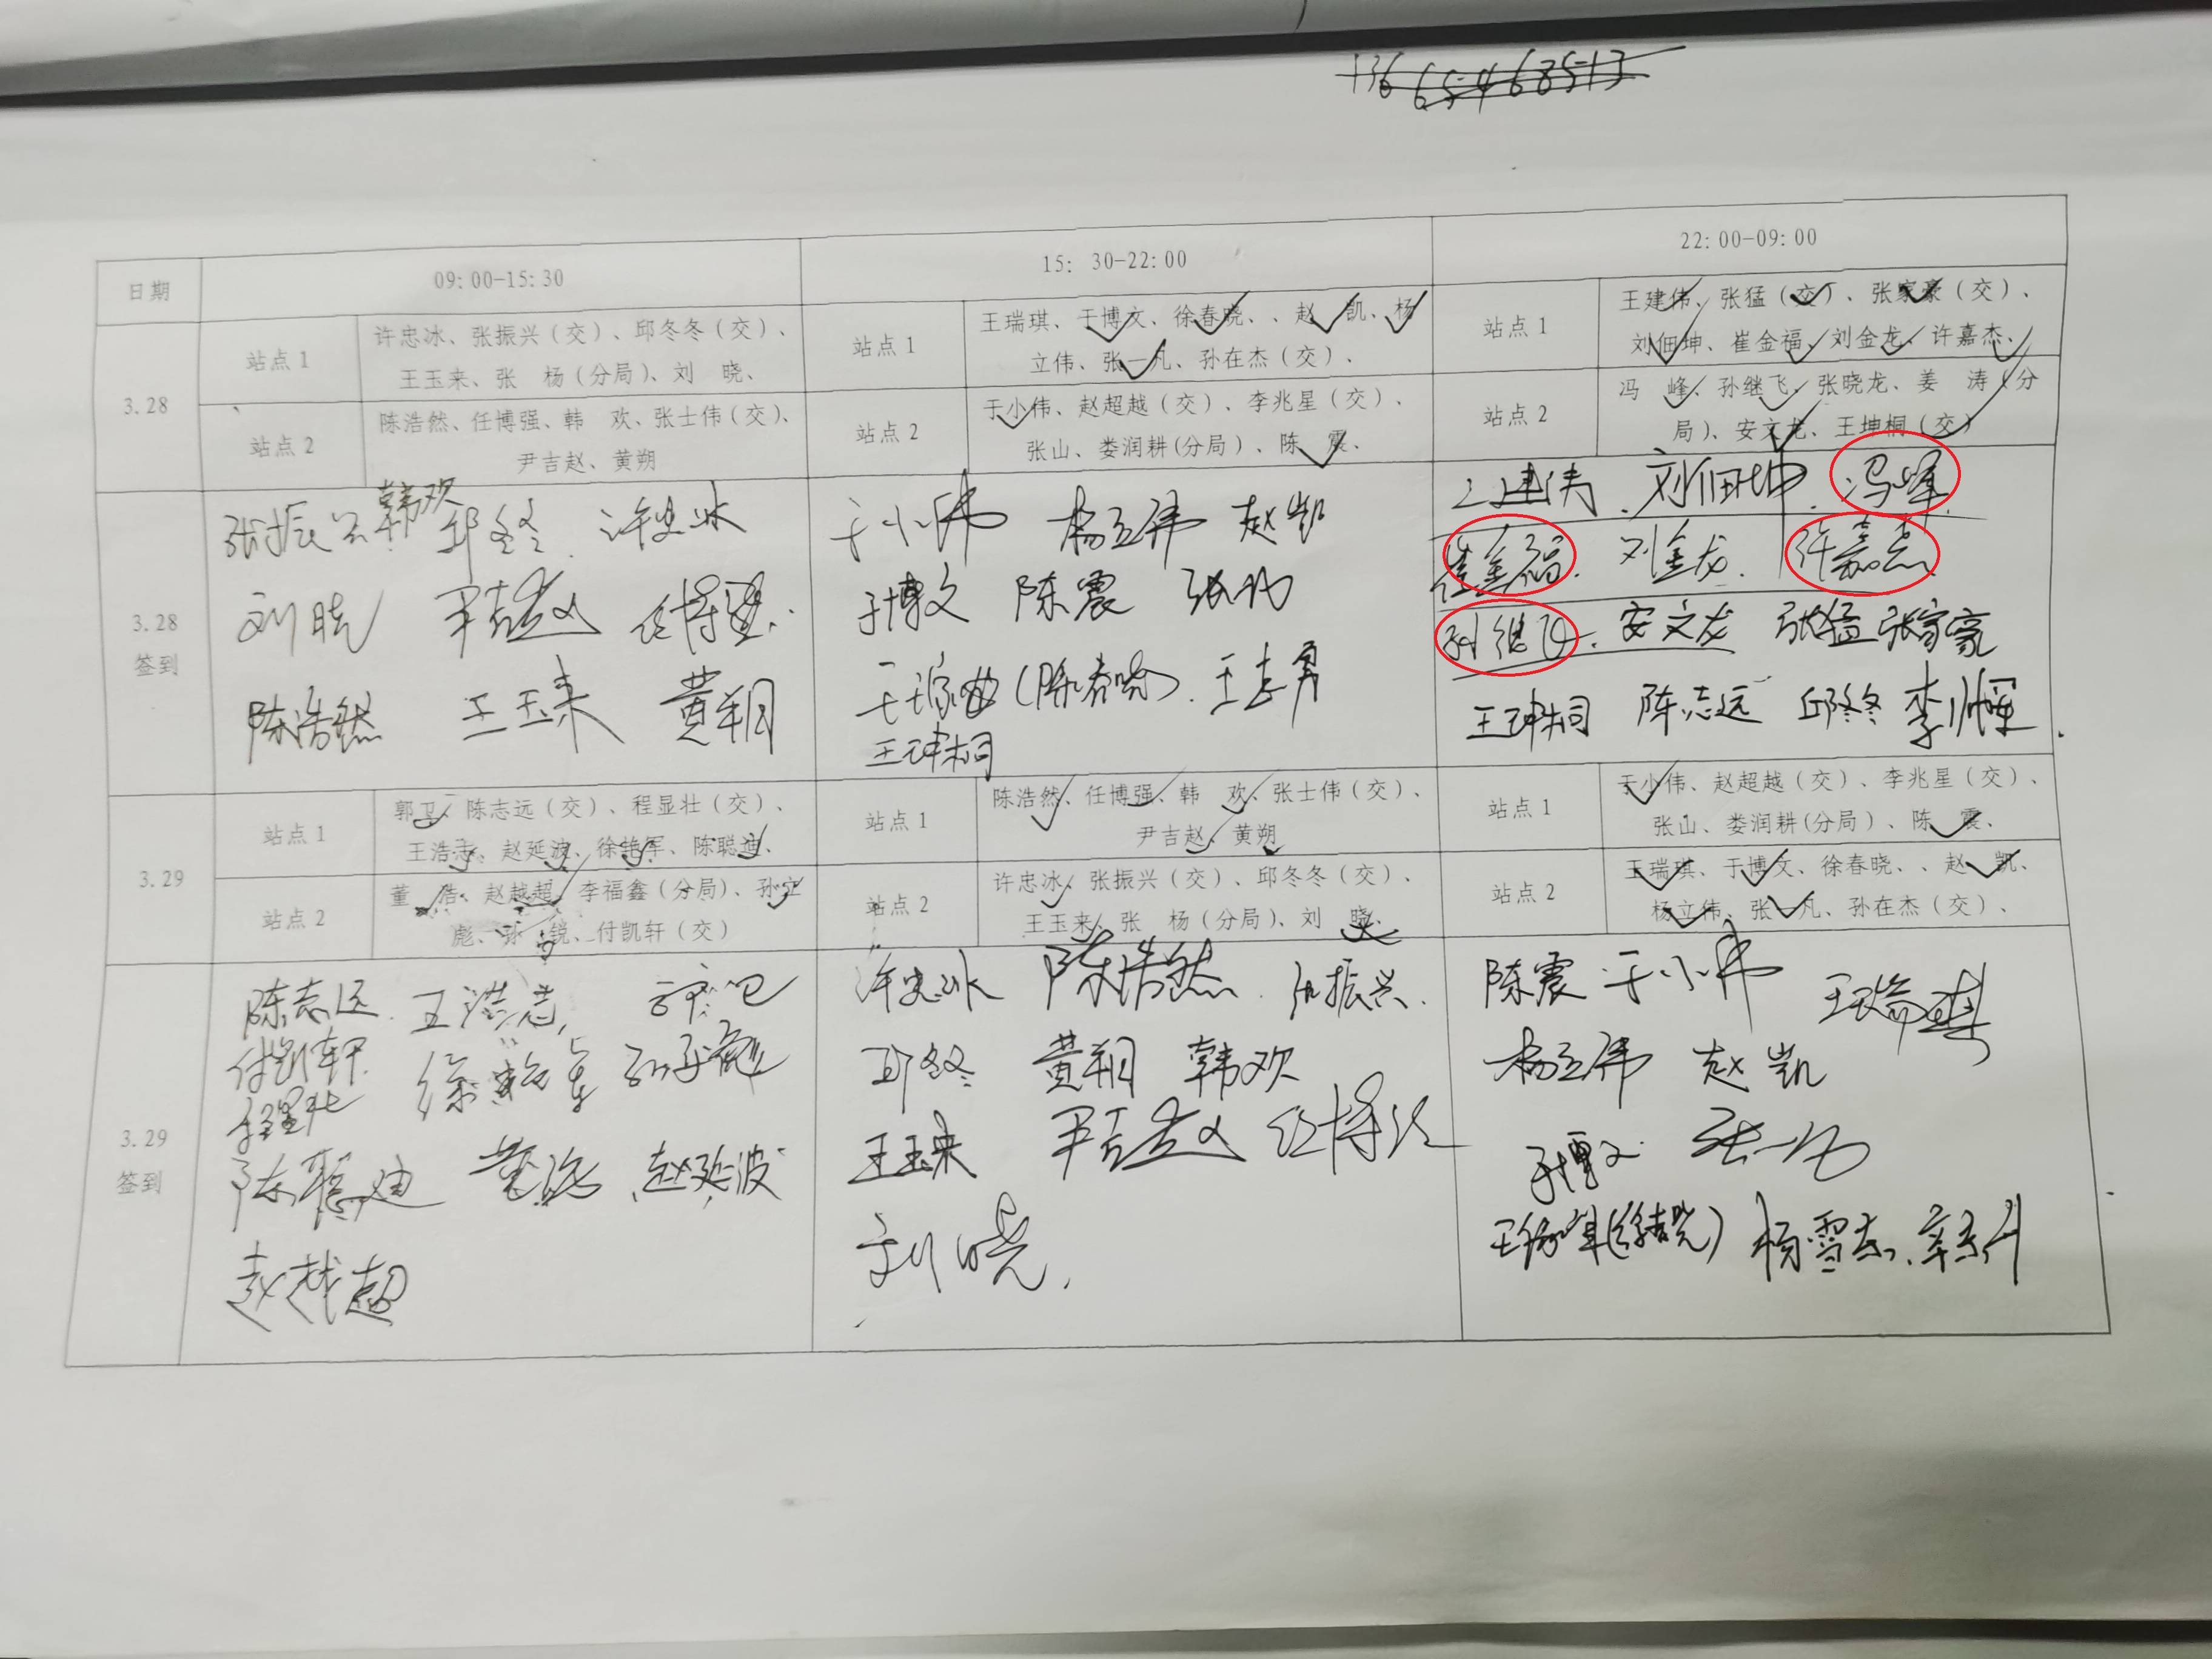 13665468513
日期
09:00-15:30
15:30-22:00
22:00-09:00
3.28
站点1
许忠冰、张振兴（交）、邱冬冬（交）、
王玉来、张 杨（分局）、刘 晓、
站点1
王瑞琪、于博文、徐春晓、、赵 凯、杨
立伟、张一凡、孙在杰（交）、
站点1
王建伟、张猛（交）、张家豪（交）、
刘佃坤、崔金福、刘金龙、许嘉杰、
站点2
陈浩然、任博强、韩 欢、张士伟（交）、
尹吉赵、黄朔
站点2
于小伟、赵超越（交）、李兆星（交）、
张山、娄润耕(分局)、陈 震、
站点2
冯 峰、孙继飞、张晓龙、姜 涛（分
局）、安文龙、王坤桐（交）
3.28
签到
张振兴 韩欢 邱冬冬 许忠冰
刘晓 尹吉赵 任博强
陈浩然 王玉来 黄朔
于小伟 杨立伟 赵凯
于博文 陈震 张一凡
王志勇
王坤桐
王建伟 刘佃坤 冯峰
崔金福 刘金龙 许嘉杰
孙继飞 安文龙 张猛 张家豪
王坤桐 陈志远 邱冬冬 李帅辉
3.29
站点1
郭卫、陈志远（交）、程显壮（交）、
王浩志、赵延波、徐艳军、陈聪迪、
站点1
陈浩然、任博强、韩 欢、张士伟（交）、
尹吉赵、黄朔
站点1
于小伟、赵超越（交）、李兆星（交）、
张山、娄润耕(分局)、陈 震、
站点2
董 浩、赵越超、李福鑫（分局）、孙守
彪、孙 锐、付凯轩（交）
站点2
许忠冰、张振兴（交）、邱冬冬（交）、
王玉来、张 杨（分局）、刘 晓、
站点2
王瑞琪、于博文、徐春晓、、赵 凯、
杨立伟、张一凡、孙在杰（交）、
3.29
签到
陈志远 王浩志 郭卫
付凯轩 徐艳军 孙守彪
程显壮
陈聪迪 董浩 赵延波
赵越超
许忠冰 陈浩然 张振兴
邱冬冬 黄朔 韩欢
王玉来 尹吉赵 任博强
刘晓
陈震 于小伟 王瑞琪
杨立伟 赵凯
于博文 张一凡
(徐春晓) 杨雪东